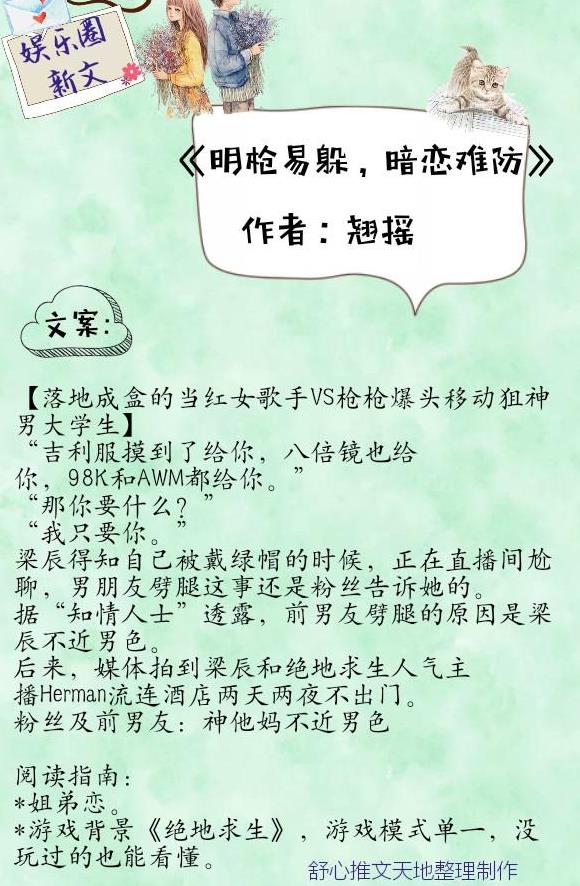 娱乐圈
新文
《明枪易躲，暗恋难防》
作者：翘摇
文案：
【落地成盒的当红女歌手VS枪枪爆头移动狙神
男大学生】
“吉利服摸到了给你，八倍镜也给
你，98K和AWM都给你。”
“那你要什么？”
“我只要你。”
梁辰得知自己被戴绿帽的时候，正在直播间尬
聊，男朋友劈腿这事还是粉丝告诉她的。
据“知情人士”透露，前男友劈腿的原因是梁
辰不近男色。
后来，媒体拍到梁辰和绝地求生人气主
播Herman流连酒店两天两夜不出门。
粉丝及前男友：神他妈不近男色
阅读指南：
*姐弟恋。
*游戏背景《绝地求生》，游戏模式单一，没
玩过的也能看懂。
舒心推文天地整理制作